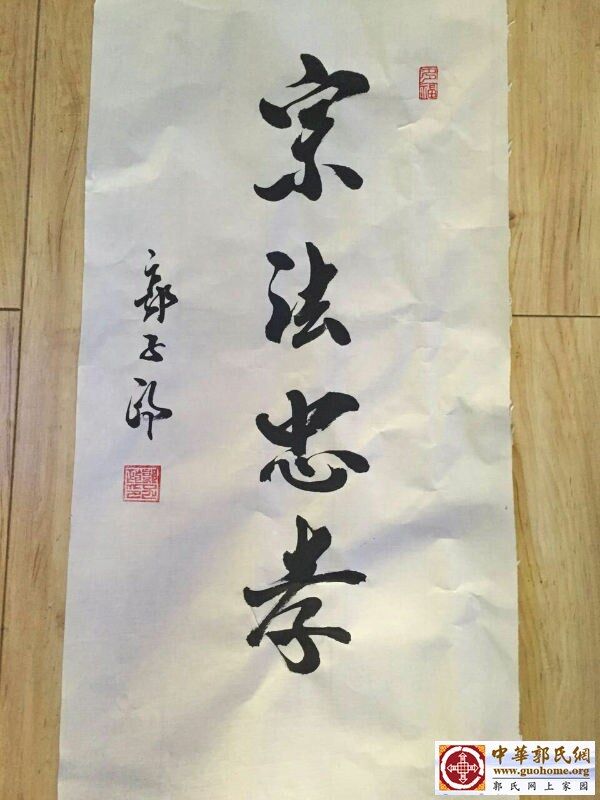 宗法忠孝
郭子
中華郭氏網
www.guohome.org
郭氏网上家园